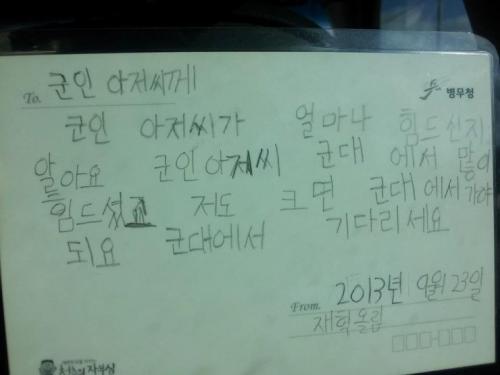 To. 군인 아저씨께
병무청
군인 아저씨가 얼마나 힘드신지
알아요 군인아저씨 군대에서 많이
힘드셨죠 저도 크면 군대에서 가야
되요 군대에서 기다리세요
From. 2013년 9월 23일
재혁올림